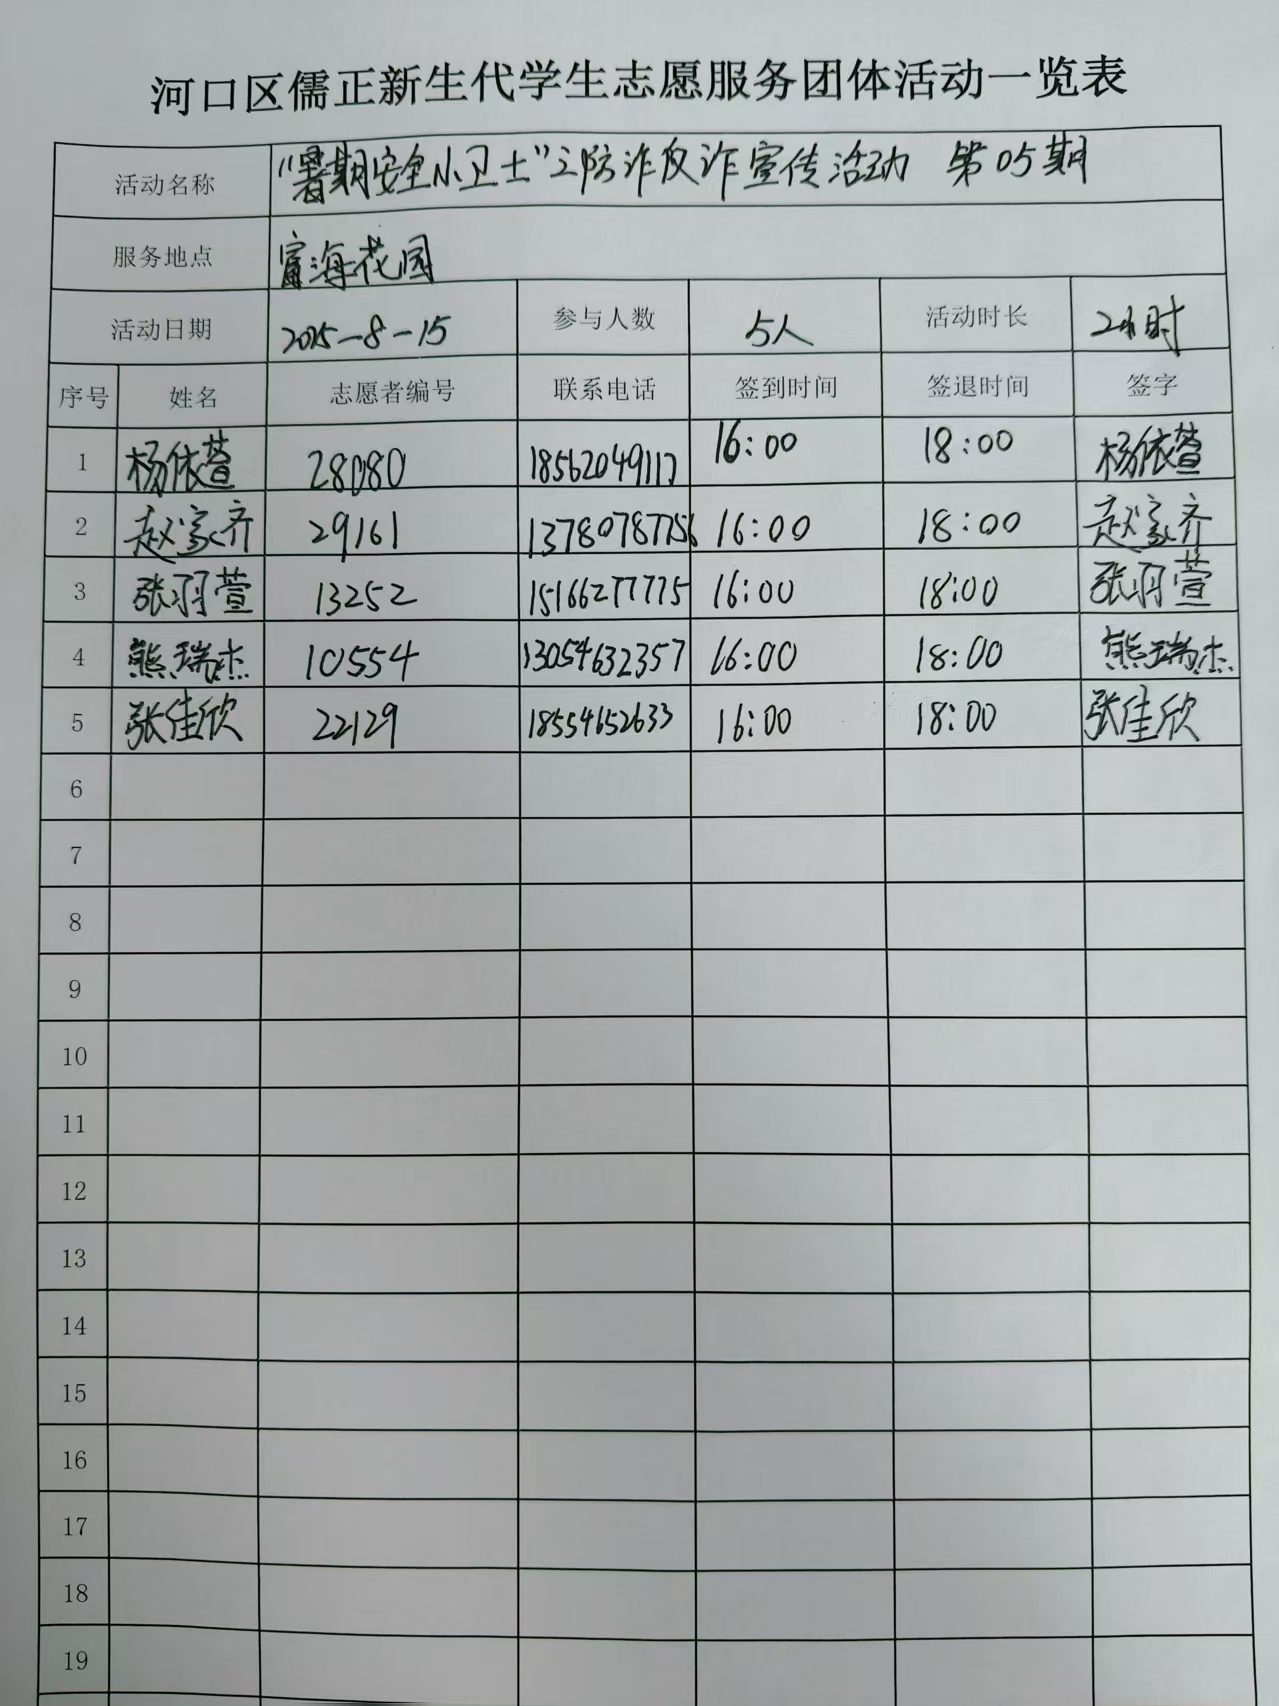 河口区儒正新生代学生志愿服务团体活动一览表
活动名称 “暑期安全小卫士”之防诈反诈宣传活动 第05期
服务地点 富海花园
活动日期 2025-8-15 参与人数 5人 活动时长 2小时
序号 姓名 志愿者编号 联系电话 签到时间 签退时间 签字
1 杨依萱 28080 18562049117 16:00 18:00 杨依萱
2 赵家齐 29161 13780787756 16:00 18:00 赵家齐
3 张羽萱 13252 15166277775 16:00 18:00 张羽萱
4 熊瑞杰 10554 13054632357 16:00 18:00 熊瑞杰
5 张佳欣 22129 18554652633 16:00 18:00 张佳欣
6
7
8
9
10
11
12
13
14
15
16
17
18
19